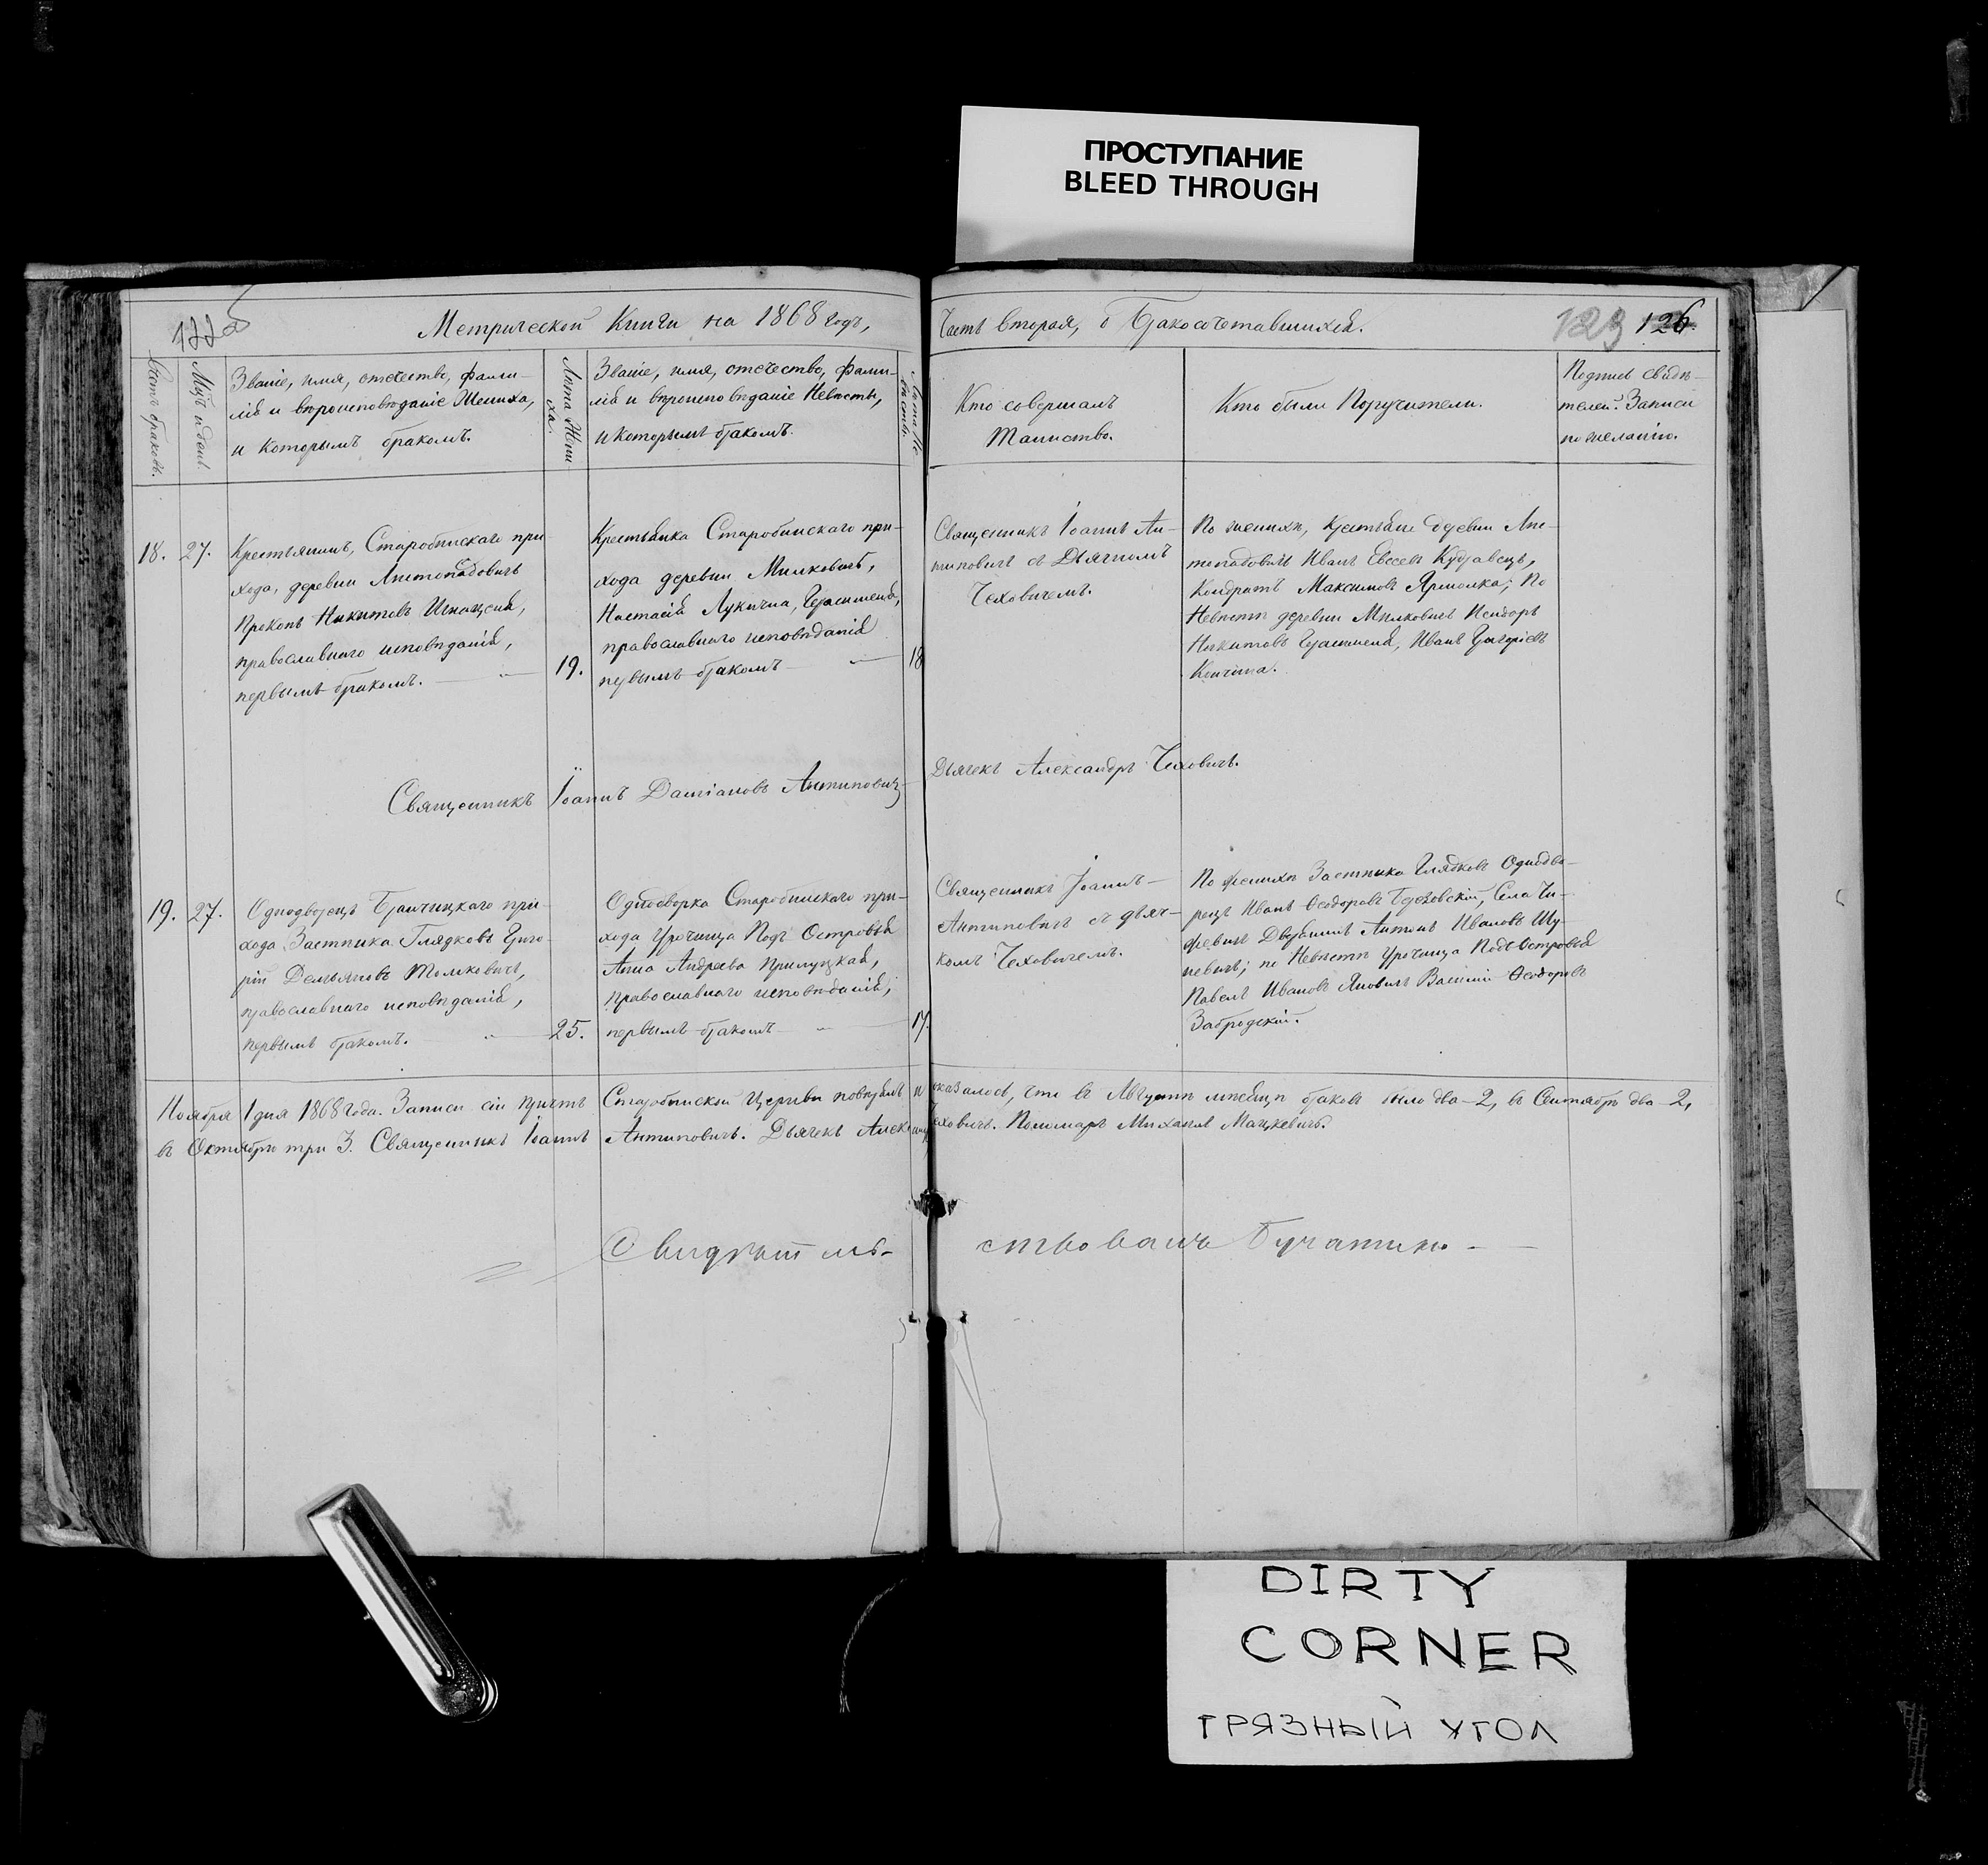 ПРОСТУПАНИЕ
BLEED THROUGH
Метрической Книги на 1868 годъ,
Часть вторая, о Бракосочетавшихся.
123 126.
Счетъ браковъ.
Мцъ и день
Званіе, имя, отечество, фами-
лія и вѣроисповѣданіе Жениха,
и которымъ бракомъ.
Лѣта Жени
ха.
Званіе, имя, отечество, фами-
лія и вѣроисповѣданіе Невѣсты,
и которымъ бракомъ.
Лѣта Не
вѣсты.
Кто совершалъ
Таинство.
Кто были Поручители.
Подписи свидѣ-
телей Записи
по желанію.
18. 27.
Крестьянинъ, Старобинскаго при
хода, деревни Листопадовичъ
Прокопъ Никитовъ
православнаго исповѣданія,
первымъ бракомъ.
19.
Крестьянка Старобинскаго при-
хода деревни Милковичъ,
Настасія Лукична, Герасименя,
православнаго исповѣданія
первымъ бракомъ
18
Священникъ Іоаннъ Ан-
типовичъ съ Дьячкомъ
Чеховичемъ.
По женихѣ, Крестьяне деревни Лис-
топадовичъ Иванъ Евсеевъ Кудравецъ,
Кондратъ Максимовъ Ярмолка; По
Невѣстѣ деревни Милковичъ Исидоръ
Никитовъ Герасименя, Иванъ Григоріевъ
Священникъ Іоаннъ Даміановъ Антиповичъ
Дьячекъ Александръ Чеховичъ.
19. 27.
Однодворецъ Бранчицкаго при-
хода, Застѣнка Глядковъ Григо-
рій Демьяновъ Томковичъ,
православнаго исповѣданія,
первымъ бракомъ.
25.
Однодворка Старобинскаго при-
хода Урочища Подъ Островья
Анна Андреева Прилуцкая,
православнаго исповѣданія,
первымъ бракомъ
17.
Священникъ Іоаннъ
Антиповичъ съ дьяч-
комъ Чеховичемъ.
По женихѣ Застѣнка Глядковъ Однодво-
рецъ Иванъ Ѳеодоровъ Села Чи-
жевичъ Дворянинъ Антонъ Ивановъ Шу-
невичъ; по Невѣстѣ Урочища Подъ Островья
Павелъ Ивановъ Яновичъ Василій Ѳеодоровъ
Забродскій.
Ноября 1 дня 1868 года. Записи сіи Причтъ Старобинской Церкви повѣрялъ и оказалось, что въ Августѣ мѣсяцѣ браковъ было два-2, въ Сентябрѣ два-2,
въ Октябрѣ три 3. Священникъ Іоаннъ Антиповичъ. Дьячекъ Александръ Чеховичъ. Пономарь Михаилъ Мацкевичъ.
Свидѣтель-
ствовалъ
DIRTY
CORNER
ГРЯЗНЫЙ УГОЛ